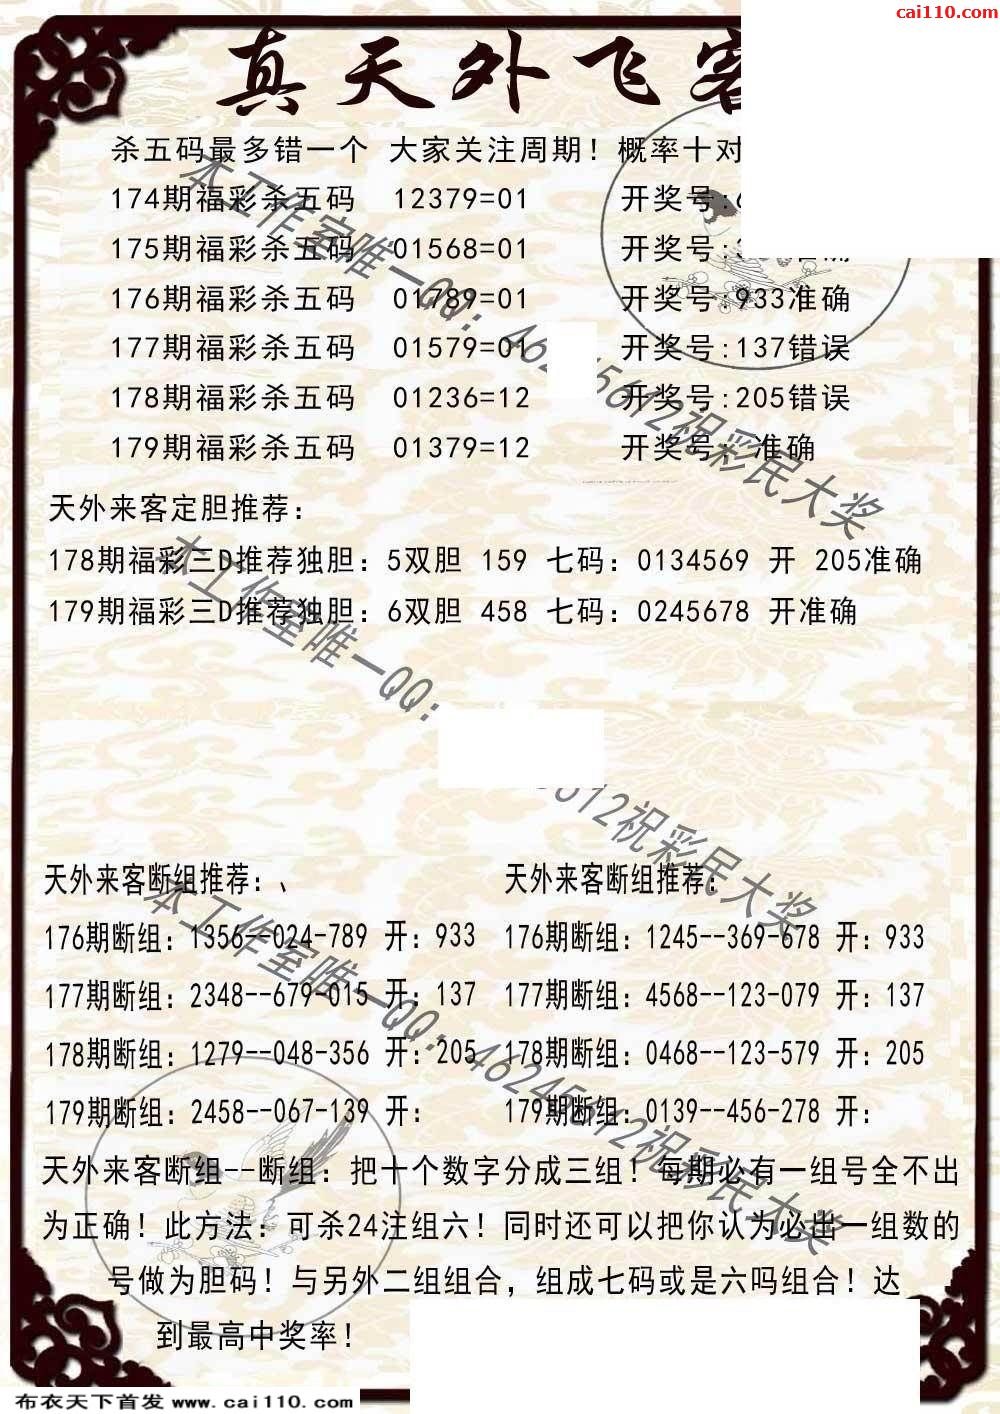 cai110.com
真天外飞客
杀五码最多错一个 大家关注周期！概率十对
174期福彩杀五码 12379=01 开奖号:
175期福彩杀五码 01568=01 开奖号:
176期福彩杀五码 01789=01 开奖号:933准确
177期福彩杀五码 01579=01 开奖号:137错误
178期福彩杀五码 01236=12 开奖号:205错误
179期福彩杀五码 01379=12 开奖号: 准确
本工作室唯一QQ: 462 5612祝彩民大奖
天外来客定胆推荐:
178期福彩三D推荐独胆: 5双胆 159 七码: 0134569 开 205准确
179期福彩三D推荐独胆: 6双胆 458 七码: 0245678 开准确
本工作室唯一QQ: 5612祝彩民大奖
天外来客断组推荐:、
176期断组: 1356--024-789 开: 933
177期断组: 2348--679-015 开: 137
178期断组: 1279--048-356 开: 205
179期断组: 2458--067-139 开:
天外来客断组推荐:
176期断组: 1245--369-678 开: 933
177期断组: 4568--123-079 开: 137
178期断组: 0468--123-579 开: 205
179期断组: 0139--456-278 开:
本工作室唯一QQ: 46245612祝彩民大奖
天外来客断组--断组: 把十个数字分成三组！每期必有一组号全不出
为正确！此方法: 可杀24注组六！同时还可以把你认为必出一组数的
号做为胆码！与另外二组组合，组成七码或是六吗组合！达
到最高中奖率！
布衣天下首发 www.cai110.com